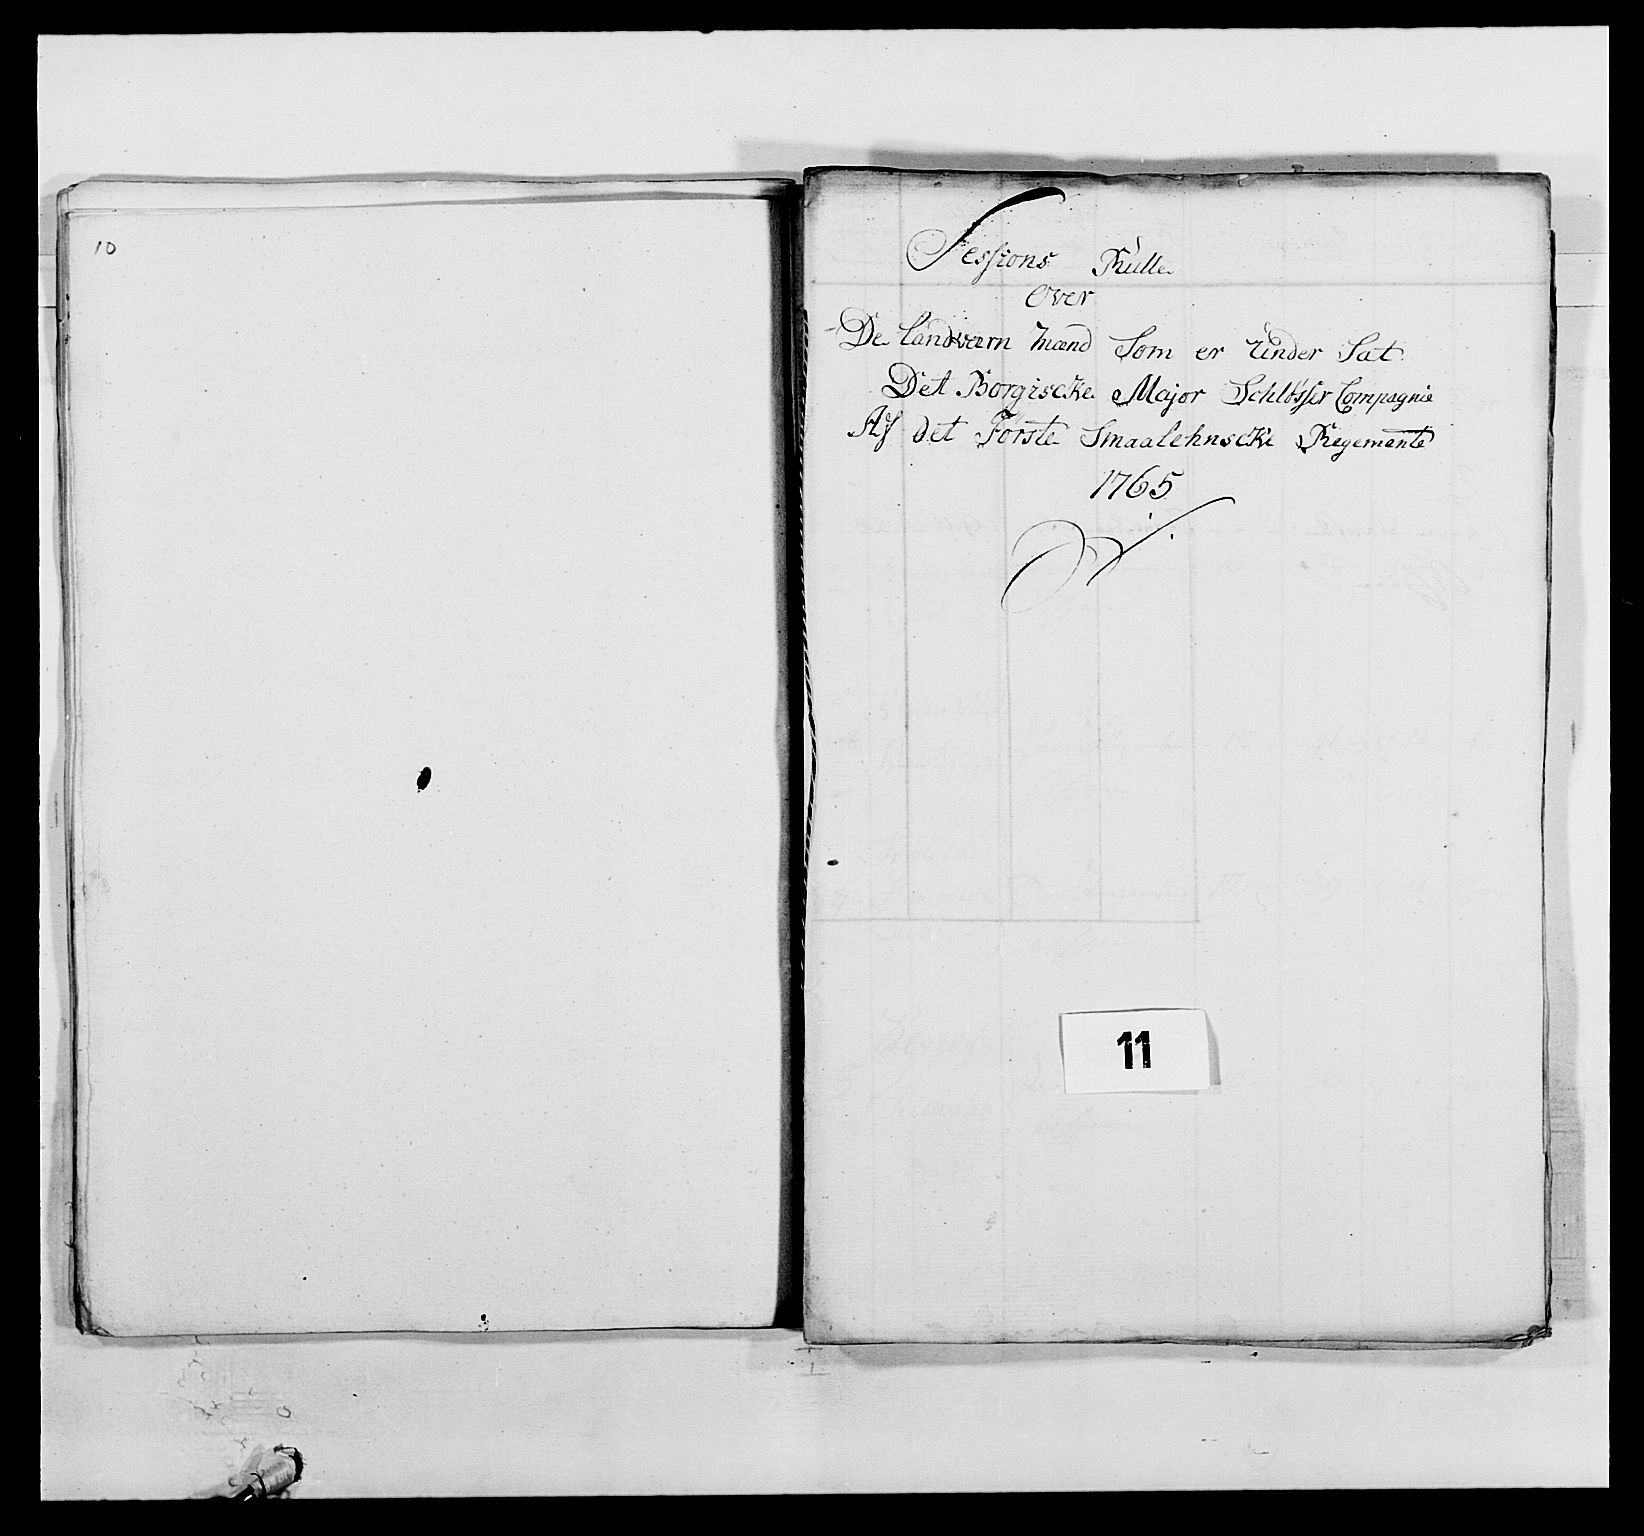 10
Sessions Rulle
Over
De Landværn Mænd Som er Under Sat
Det Borgiscke Major Schløsser Compagnie
Af det Første Smaalehnscke Regemente
1765
11